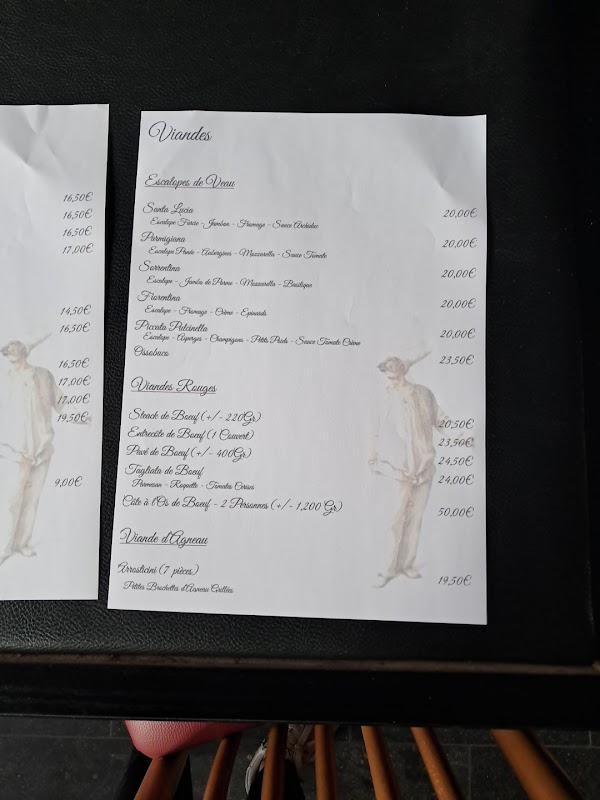 16,50€
16,50€
16,50€
17,00€
14,50€
16,50€
16,50€
17,00€
17,00€
19,50€
9,00€
Viandes
Escalopes de Veau
Santa Lucia 20,00€
Escalope Farcie - Jambon - Fromage - Sauce Archiduc
Parmigiana 20,00€
Escalope Panée - Aubergines - Mozzarella - Sauce Tomate
Sorrentina 20,00€
Escalope - Jambo de Parme - Mozzarella - Basilique
Fiorentina 20,00€
Escalope - Fromage - Crème - Epinards
Piccata Pulcinella 20,00€
Escalope - Asperges - Champigons - Petits Poids - Sauce Tomate Crème
Ossobuco 23,50€
Viandes Rouges
Steack de Boeuf (+/- 220Gr) 20,50€
Entrecôte de Boeuf (1 Couvert) 23,50€
Pavé de Boeuf (+/- 400Gr) 24,50€
Tagliata de Boeuf 24,00€
Parmesan - Roquette - Tomates Cerises
Côte à l'Os de Boeuf - 2 Personnes (+/- 1,200 Gr) 50,00€
Viande d'Agneau
Arrosticini (7 pièces) 19,50€
Petites Brochettes d'Agneau Grillées